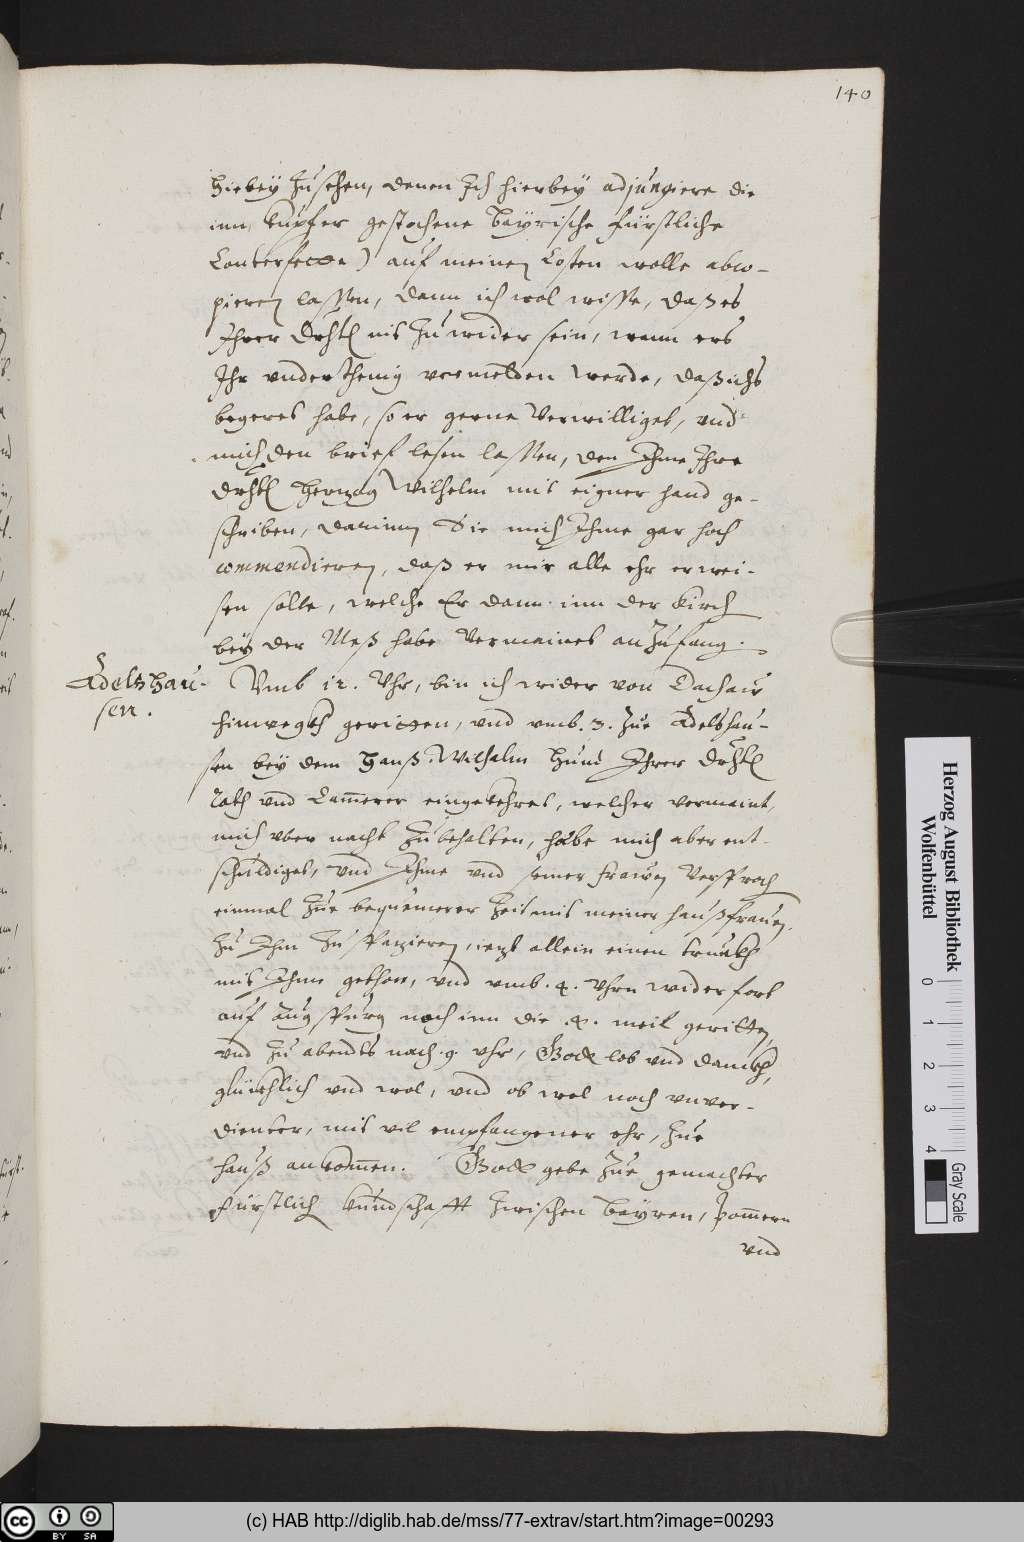 140
hiebey zusehen, denen Ich hierbey adjungiere die
inn kupfer gestochene Bayrische Fürstliche
Conterfette) auf meinen Costen wolle abco-
pieren lassen, dann ich wol wisse, daß es
Ihrer Drhtl nit zuwider sein, wann ers
Ihr vnderthenig vermelden werde, daß ichs
begeret habe, so er gerne verwilliget, vnd
mich den brief lesen lassen, den Ihme Ihre
Drhtl Herzog Wilhelm mit eigner hand ge-
schriben, darinnen Sie mich Ihme gar hoch
commendieren, daß er mir alle ehr erwei-
sen solle, welche Er dann inn der Kirch
bey der Meß habe vermainet anzufang.
Adeltzhau-
sen.
Vmb 12. Vhr, bin ich wider von Dachaw
hinwegkh geritten, vnd vmb. 3. zue Adelshau-
sen bey dem Hanß Wilhelm Hund Ihrer Drhtl
Rath vnd Camerer eingekehret, welcher vermaint,
mich vber nacht zubehalten, habe mich aber ent-
schuldiget, vnd Ihme vnd seiner frawen versproch
einmal zue bequemerer Zeit mit meiner haußfrauen
zu Ihm zu spazieren, iezt allein einen trunkh
mit Ihme gethon, vnd vmb. 4. Vhrn wider fort
auf Augspurg noch inn die .4. meil geritten,
vnd zu abendts nach .9. vhr, Gott lob vnd dankh,
glückhlich vnd wol, vnd ob wol noch vnver-
dienter, mit vil empfangener ehr, zue
hauß ankommen. Gott gebe zue gemachter
fürstlich kundschafft zwischen Bayren, Pomern
vnd
Herzog August Bibliothek
Wolfenbüttel
0 1 2 3 4
Gray Scale
(c) HAB http://diglib.hab.de/mss/77-extrav/start.htm?image=00293
cc BY SA